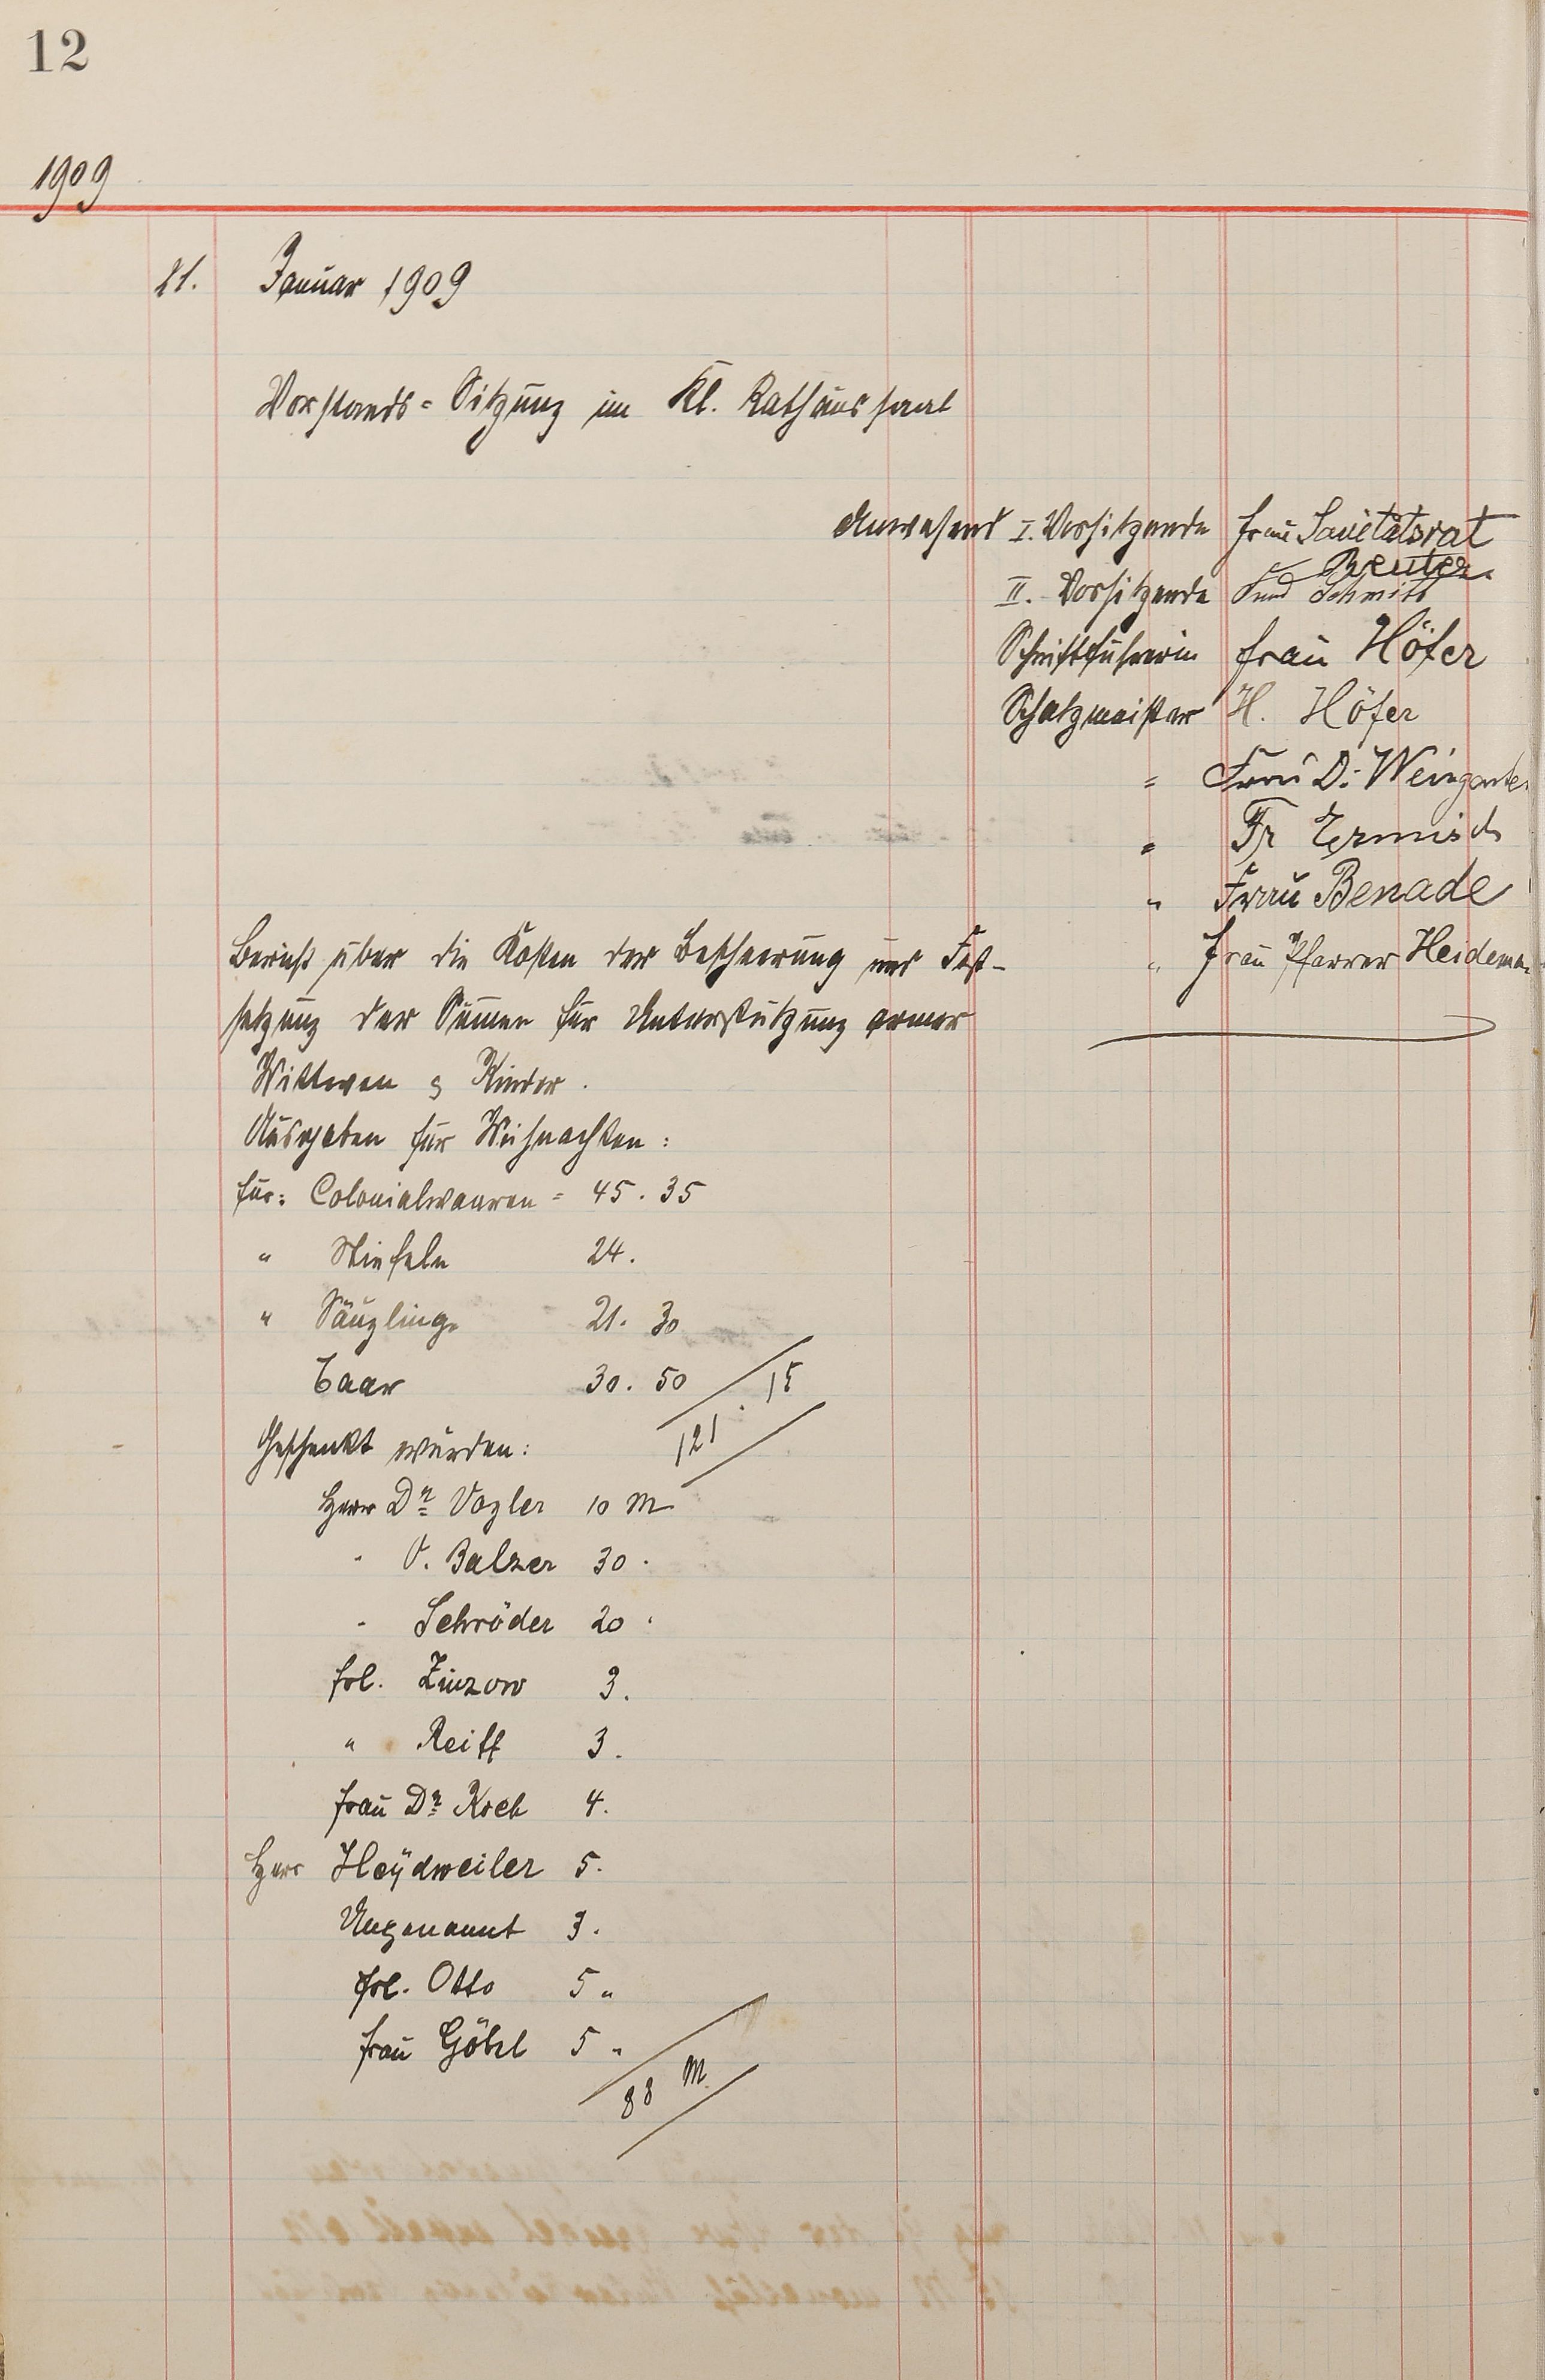 12
1909
21. Januar 1909
Vorstands=Sitzung im Kl. Rathaussaal
Anwesend I. Vorsitzende Frau Sanitätsrat
Reuter
II. Vorsitzende Schmitt
Schriftführerin Frau Höfer
Schatzmeister H. Höfer
" Frau Dr. Weingarten
" Fr Ermisch
" Frau Benade
" Frau Pfarrer Heideman
Bericht über die Kosten der Bescheerung und Fest-
setzung der Summen für Unterstützung armer
Wittwen & Kinder.
Ausgaben für Weihnachten:
für: Colonialwaaren = 45. 35
" Stiefeln 24.
" Säuglinge 21. 30
baar 30. 50
121. 15
Geschenkt wurden:
Herr Dr Vogler 10 M
" V. Balzer 30.
" Schröder 20.
Frl. Zinzow 3.
" Reiff 3.
Frau Dr Koch 4.
Herr Heÿdweiler 5.
Ungenannt 3.
Frl. Otto 5 "
Frau Göbel 5 "
88 M.